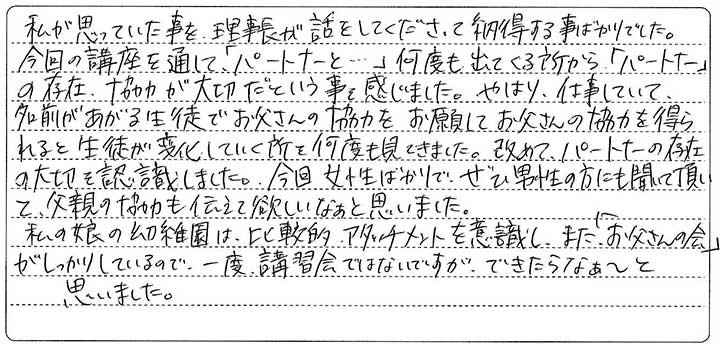 私が思っていた事を、理事長が話をしてくださって納得する事ばかりでした。
今回の講座を通して、「パートナーと…」何度も出てくる所から「パートナー」
の存在、協力が大切だという事を感じました。やはり、仕事していて、
名前があがる生徒でお父さんの協力をお願してお父さんの協力を得ら
れると生徒が変化していく所を何度も見てきました。改めて、パートナーの存在
の大切を認識しました。今回女性ばかりで、ぜひ男性の方にも聞いて頂い
て、父親の協力も伝えて欲しいなぁと思いました。
私の娘の幼稚園は、比較的アタッチメントを意識し、また「お父さんの会」
がしっかりしているので、一度、講習会ではないですが、できたらなぁ〜と
思いました。